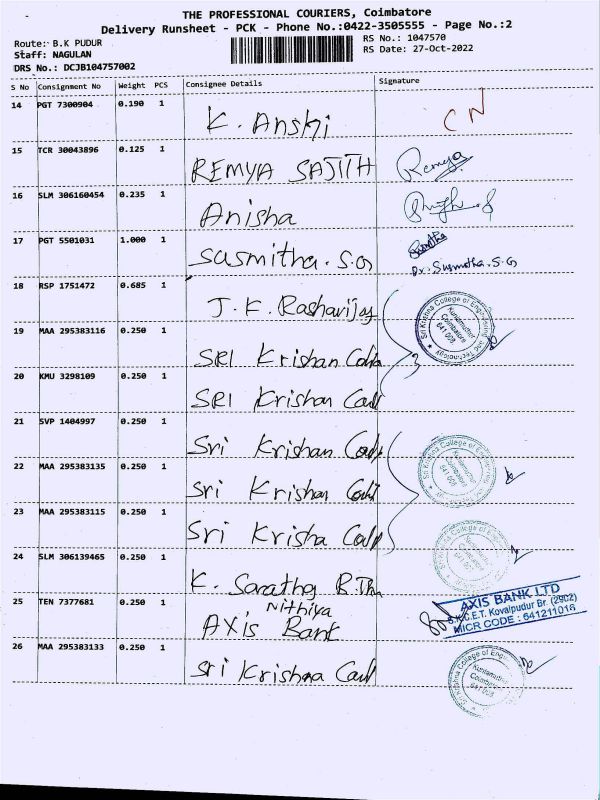 THE PROFESSIONAL COURIERS, Coimbatore
Delivery Runsheet - PCK - Phone No.:0422-3505555 - Page No.:2
Route: B.K PUDUR
RS No.: 1047570
Staff: NAGULAN
RS Date: 27-Oct-2022
DRS No.: DCJB104757002
S No Consignment No Weight PCS Consignee Details Signature
14 PGT 7300904 0.190 1
K. Anshi CN
15 TCR 30043896 0.125 1
REMYA SAJITH Remya
16 SLM 306160454 0.235 1
Anisha
17 PGT 5501031 1.000 1
Susmitha. S.G
Dr. Susmitha. S.G
18 RSP 1751472 0.685 1
J. K.
Sri Krishna College of Engineering and Technology
Kuniamuthur
Coimbatore
641 008
19 MAA 295383116 0.250 1
SRI Krishan
20 KMU 3298109 0.250 1
SRI Krishan
21 SVP 1404997 0.250 1
Sri Krishan
22 MAA 295383135 0.250 1
Sri Krishan
Sri Krishna College of Engineering
Kuniamuthur
Coimbatore
641 008
23 MAA 295383115 0.250 1
Sri Krisha
24 SLM 306139465 0.250 1
K.
25 TEN 7377681 0.250 1
Nithiya
AXIS Bank
AXIS BANK LTD
S.K.C.E.T. Kovaipudur Br. (2902)
MICR CODE : 641211016
26 MAA 295383133 0.250 1
Sri Krishna
Sri Krishna College of
Kuniamuthur
Coimbatore
641 008